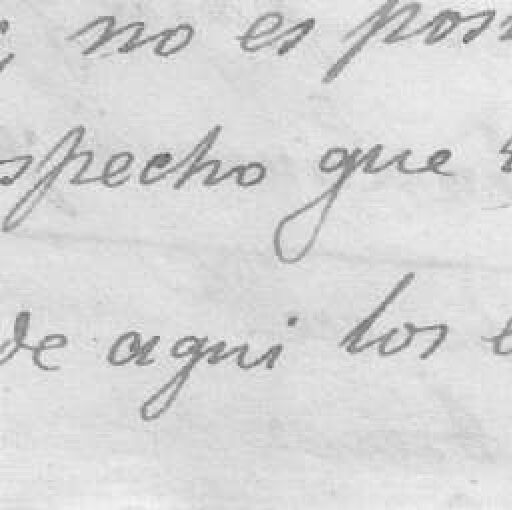 no es pos
specho que
de aqui los e